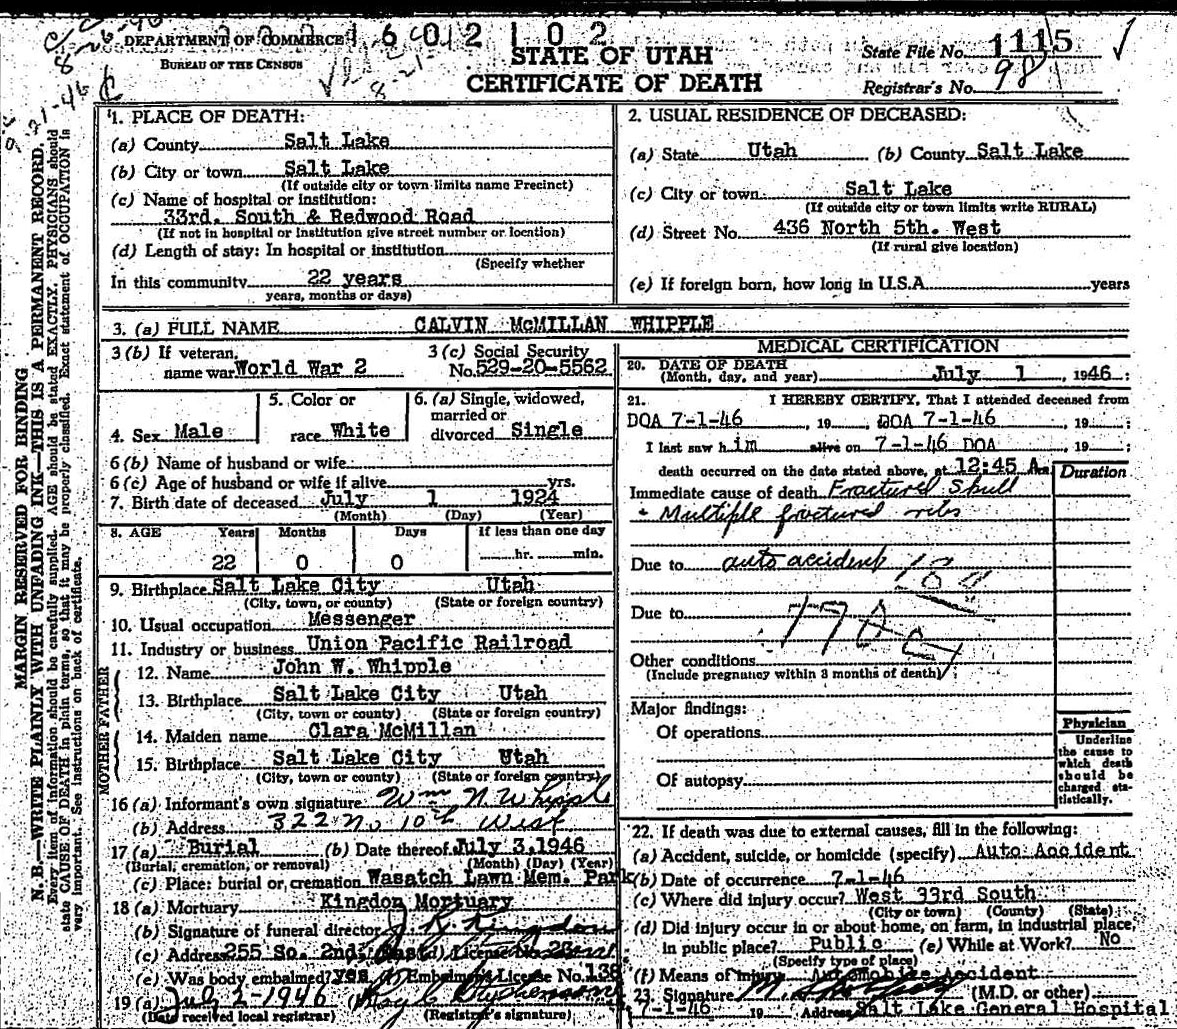 DEPARTMENT OF COMMERCE
BUREAU OF THE CENSUS
STATE OF UTAH
CERTIFICATE OF DEATH
State File No. 1115
Registrar's No. 98
MARGIN RESERVED FOR BINDING
N. B.—WRITE PLAINLY WITH UNFADING INK—THIS IS A PERMANENT RECORD.
Every item of information should be carefully supplied. AGE should be stated EXACTLY. PHYSICIANS should
state CAUSE OF DEATH in plain terms, so that it may be properly classified. Exact statement of OCCUPATION is
very important. See instructions on back of certificate.
1. PLACE OF DEATH:
(a) County Salt Lake
(b) City or town Salt Lake
(If outside city or town limits name Precinct)
(c) Name of hospital or institution:
33rd. South & Redwood Road
(If not in hospital or institution give street number or location)
(d) Length of stay: In hospital or institution
(Specify whether
In this community 22 years
years, months or days)
2. USUAL RESIDENCE OF DECEASED:
(a) State Utah (b) County Salt Lake
(c) City or town Salt Lake
(If outside city or town limits write RURAL)
(d) Street No. 436 North 5th. West
(If rural give location)
(e) If foreign born, how long in U.S.A. years
3. (a) FULL NAME CALVIN McMILLAN WHIPPLE
3 (b) If veteran, name war World War 2
3 (c) Social Security No. 529-20-5562
4. Sex Male
5. Color or race White
6. (a) Single, widowed, married or divorced Single
6 (b) Name of husband or wife
6 (c) Age of husband or wife if alive yrs.
7. Birth date of deceased July 1 1924
(Month) (Day) (Year)
8. AGE Years Months Days If less than one day
22 0 0 hr. min.
9. Birthplace Salt Lake City Utah
(City, town, or county) (State or foreign country)
10. Usual occupation Messenger
11. Industry or business Union Pacific Railroad
FATHER
12. Name John W. Whipple
13. Birthplace Salt Lake City Utah
(City, town or county) (State or foreign country)
MOTHER
14. Maiden name Clara McMillan
15. Birthplace Salt Lake City Utah
(City, town or county) (State or foreign country)
16 (a) Informant's own signature Wm N. Whipple
(b) Address 322 No 10th West
17 (a) Burial (b) Date thereof July 3, 1946
(Burial, cremation, or removal) (Month) (Day) (Year)
(c) Place: burial or cremation Wasatch Lawn Mem. Park
18 (a) Mortuary Kingdon Mortuary
(b) Signature of funeral director
(c) Address 255 So. 2nd. East License No.
(e) Was body embalmed? yes Embalmer's License No. 138
19 (a) July 2-1946
(Date received local registrar) (Registrar's signature)
MEDICAL CERTIFICATION
20. DATE OF DEATH
(Month, day, and year) July 1, 1946
21. I HEREBY CERTIFY, That I attended deceased from
DOA 7-1-46, 19 , DOA 7-1-46, 19 ;
I last saw him alive on 7-1-46 DOA, 19 ;
death occurred on the date stated above, at 12:45 A
Duration
Immediate cause of death Fractured Skull
+ Multiple fractured ribs
Due to auto accident
Due to
Other conditions
(Include pregnancy within 3 months of death)
Major findings:
Of operations
Of autopsy
Physician
Underline the cause to which death should be charged statistically.
22. If death was due to external causes, fill in the following:
(a) Accident, suicide, or homicide (specify) Auto Accident
(b) Date of occurrence 7-1-46
(c) Where did injury occur? West 33rd South
(City or town) (County) (State)
(d) Did injury occur in or about home, on farm, in industrial place,
in public place? Public (e) While at Work? No
(Specify type of place)
(f) Means of injury Automobile Accident
23. Signature (M.D. or other)
7-1-46 19 Address Salt Lake General Hospital